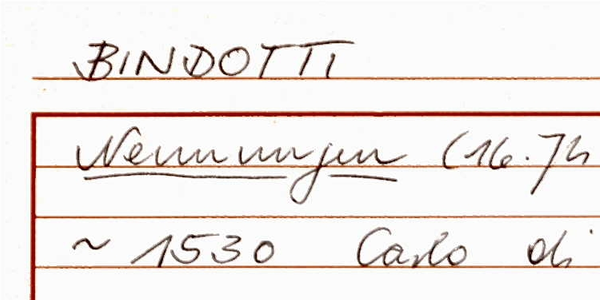 BINDOTTI
Nennungen (16. Jh
~ 1530 Carlo di